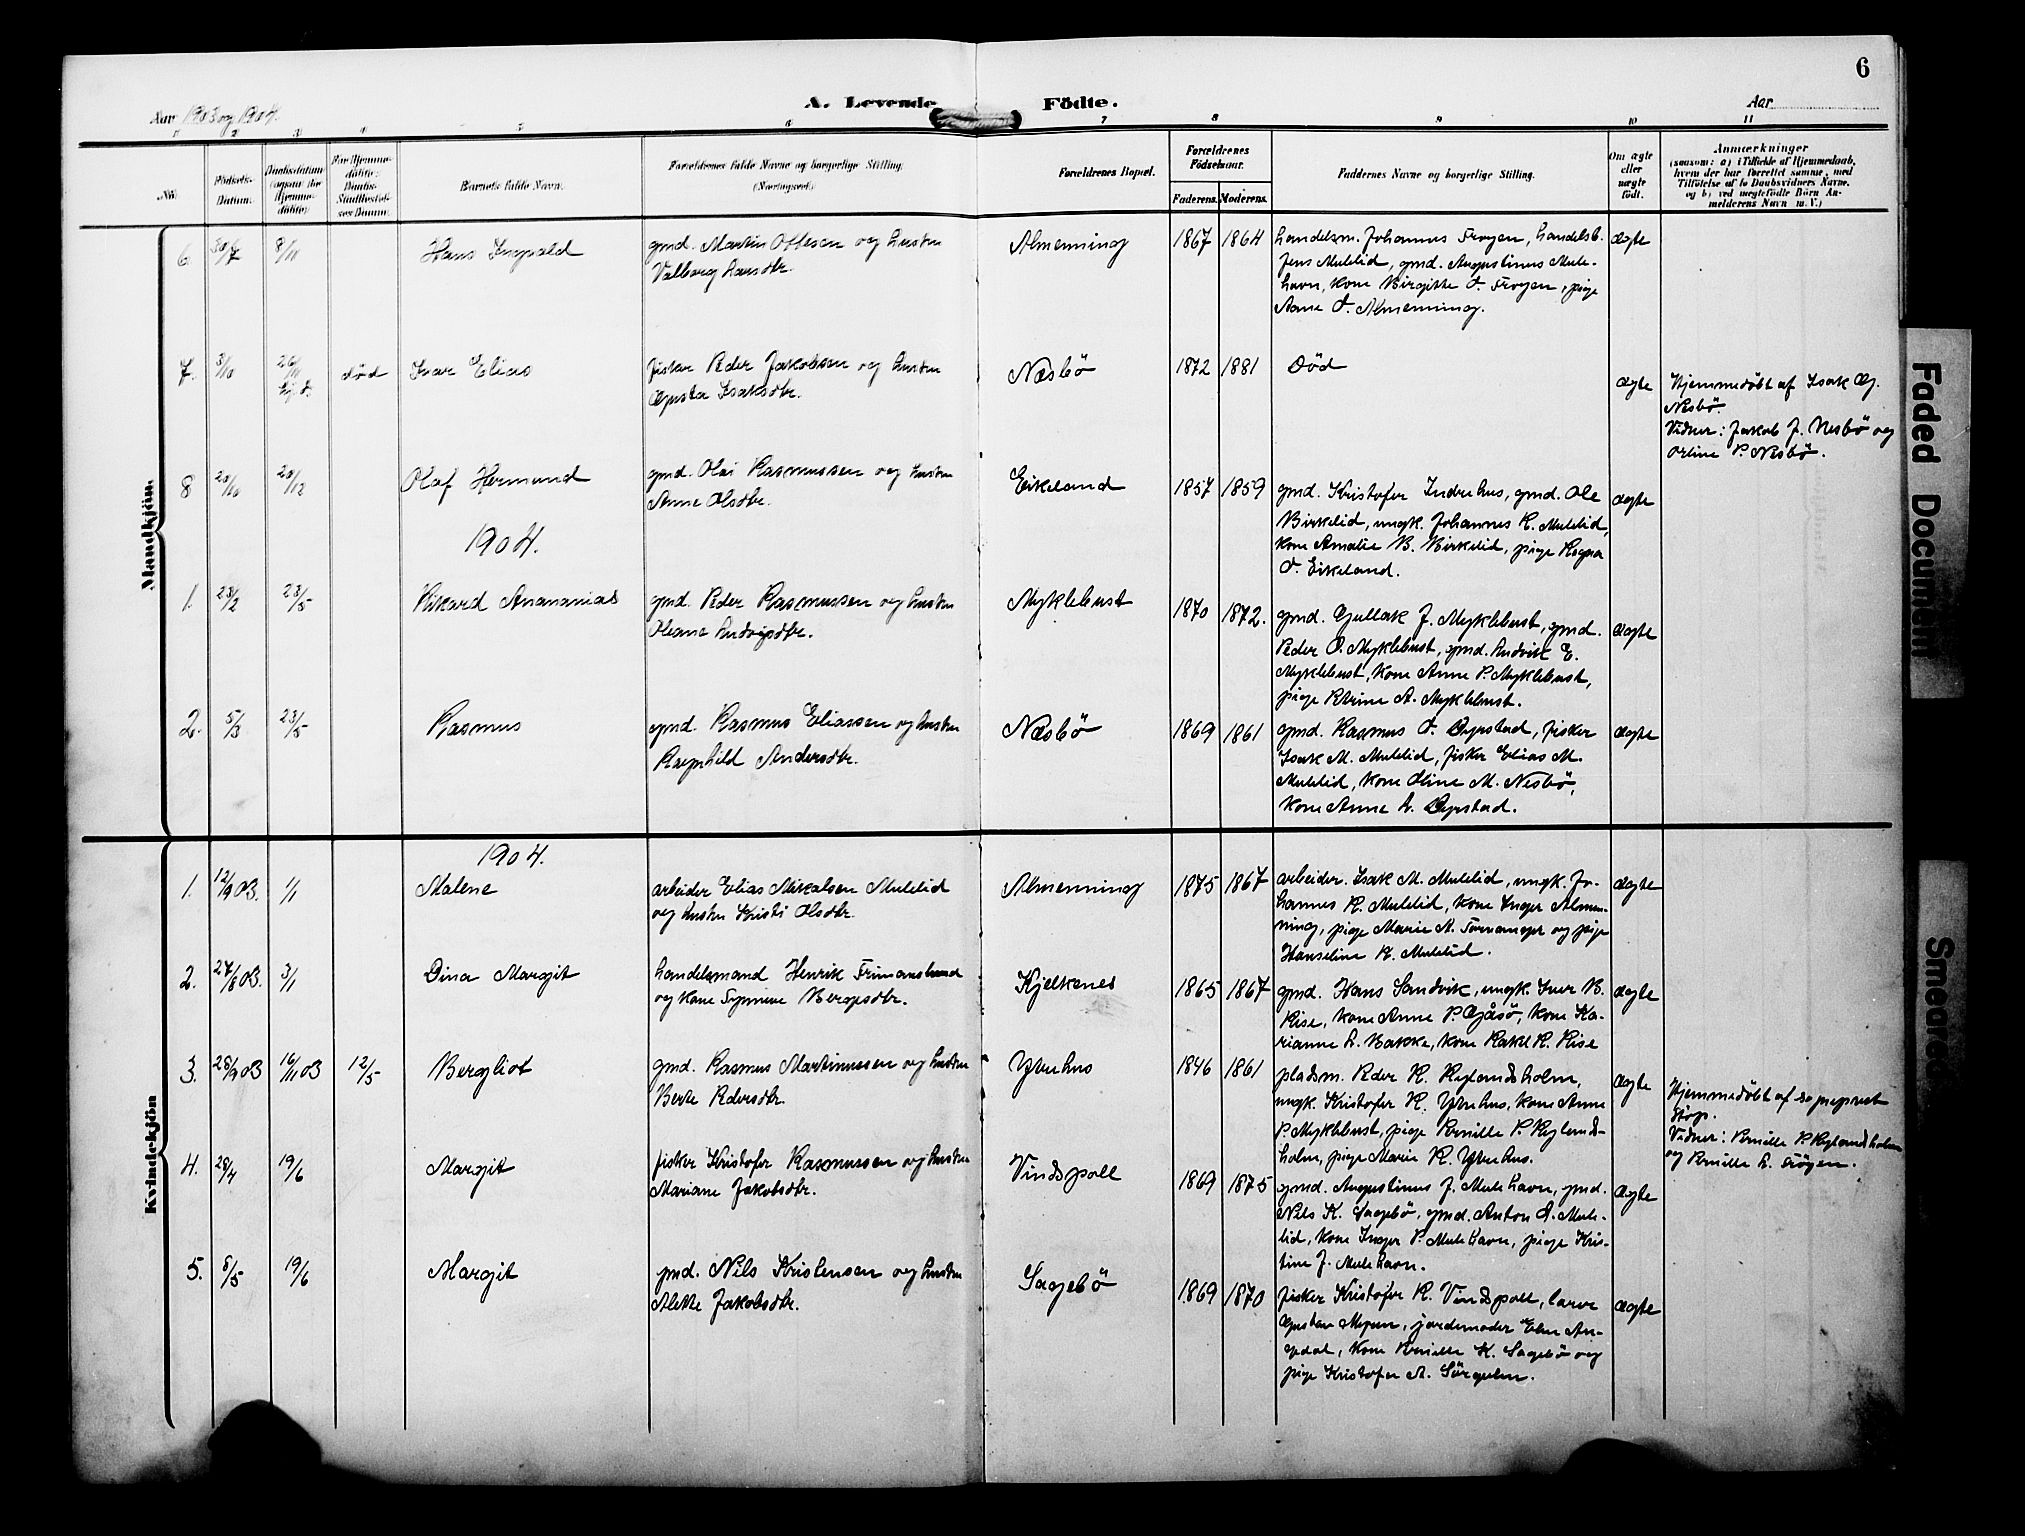 6
Aar 1903 og 1904.
A. Levende Födte.
Aar
1 2 3 4 5 6 7 8 9 10 11
No.
Födsels-
Datum.
Daabsdatum
(ogsaa for
Hjemme-
döbte)
For Hjemme-
döbte:
Daabs-
Stadfæstel-
ses Datum.
Barnets fulde Navn.
Forældrenes fulde Navne og borgerlige Stilling.
(Næringsvei.)
Forældrenes Bopæl.
Forældrenes
Födselsaar.
Faderens. Moderens.
Faddernes Navne og borgerlige Stilling.
Om ægte
eller
uægte
födt.
Anmærkninger
(saasom: a) i Tilfælde af Hjemmedaab,
hvem der har forrettet samme, med
Tilföielse af to Daabsvidners Navne,
og b) ved uægtefödte Börn An-
melderens Navn m. V.)
Mandkjön
6. 30/7 8/11 Hans Ingvald
gmd. Martin Ottesen og hustru
Valborg Larsdtr.
Almenning 1867 1864
handelsm. Johannes Frøyen, handelsb.
Jens Mulelid, gmd. Augustinus Mule-
havn, kone Birgitte O. Frøyen, pige
Anne O. Almenning.
ægte
7. 3/10 26/11 hj. d. død Ivar Elias
fisker Peder Jakobsen og hustru
Gusta Isaksdtr.
Næsbö 1872 1881 Død
ægte
Hjemmedöbt af Isak Gj.
Nesbö.
Vidner: Jakob J. Nesbö og
Orline P. Nesbö.
8 20/10 20/12 Olaf Hermund
gmd. Olai Rasmussen og hustru
Anne Olsdtr.
Eikeland 1857 1859
gmd. Kristofer Indrehus, gmd. Ole
Birkelid, ungk. Johannes R. Mulelid,
kone Amalie B. Birkelid, pige Ragna
O. Eikeland.
ægte
1904.
1. 23/2 23/5 Rikard Ananias
gmd. Peder Rasmussen og hustru
Oleane Ludvigsdtr.
Myklebust 1870 1872.
gmd. Gullak J. Myklebust, gmd.
Peder O. Myklebust, gmd. Ludvik E.
Myklebust, kone Anne P. Myklebust,
pige Petrine A. Myklebust.
ægte
2. 5/3 23/5 Rasmus
gmd. Rasmus Eliassen og hustru
Ragnhild Andersdtr.
Næsbö 1869 1861
gmd. Rasmus O. Gyrstad, fisker
Isak M. Mulelid, fisker Elias M.
Mulelid, kone Oline M. Nesbö,
kone Anne L. Gyrstad.
ægte
Kvindekjön
1904.
1. 12/9 03. 1/1 Malene
arbeider Elias Mikalsen Mulelid
og hustru Kristi Olsdtr.
Almenning 1875 1867
arbeider. Isak M. Mulelid, ungk. Jo-
hannes R. Mulelid, kone Inger Almen-
ning, pige Marie A. og pige
Hanseline R. Mulelid.
ægte
2. 27/8 03. 3/1 Dina Margit
handelsmand Henrik Frimanslund
og kone Synneve Bergesdtr.
Kjelkenes 1865 1867
gmd. Hans Sandvik, ungk. Iver B.
Rise, kone Anne P. Gåsö, kone Ka-
rianne L. Bakke, kone Rakel R. Rise
ægte
3. 28/9 03 16/11 03 12/5 Bergliot
gmd. Rasmus Martinussen og hustru
Berte Pedersdtr.
Ytrehus 1846 1861
pladsm. Peder R. Rylandsholm,
ungk. Kristofer R. Ytrehus, kone Anne
P. Myklebust, pige Pernille P. Rylands-
holm, pige Marie R. Ytrehus.
ægte
Hjemmedöbt af sogneprest
Vidner: Pernille P. Rylandsholm
og Pernille L. Fröyen.
4. 28/4 19/6 Margit
fisker Kristofer Rasmussen og hustru
Mariane Jakobsdtr.
Vindspoll 1869 1875
gmd. Augustinus J. Mulehavn, gmd.
Nils K. Sagebö, gmd. Anton A. Mule-
lid, kone Inger P. Mulehavn, pige Kris-
tine J. Mulehavn.
ægte
5. 8/5 19/6 Margit
gmd. Nils Kristensen og hustru
Alette Jakobsdtr.
Sagebö 1869 1870
fisker Kristofer R. Vindspoll,
jordemoder
kone Pernille K. Sagebö og
pige Kristofa A.
ægte
Faded Document
Smeared